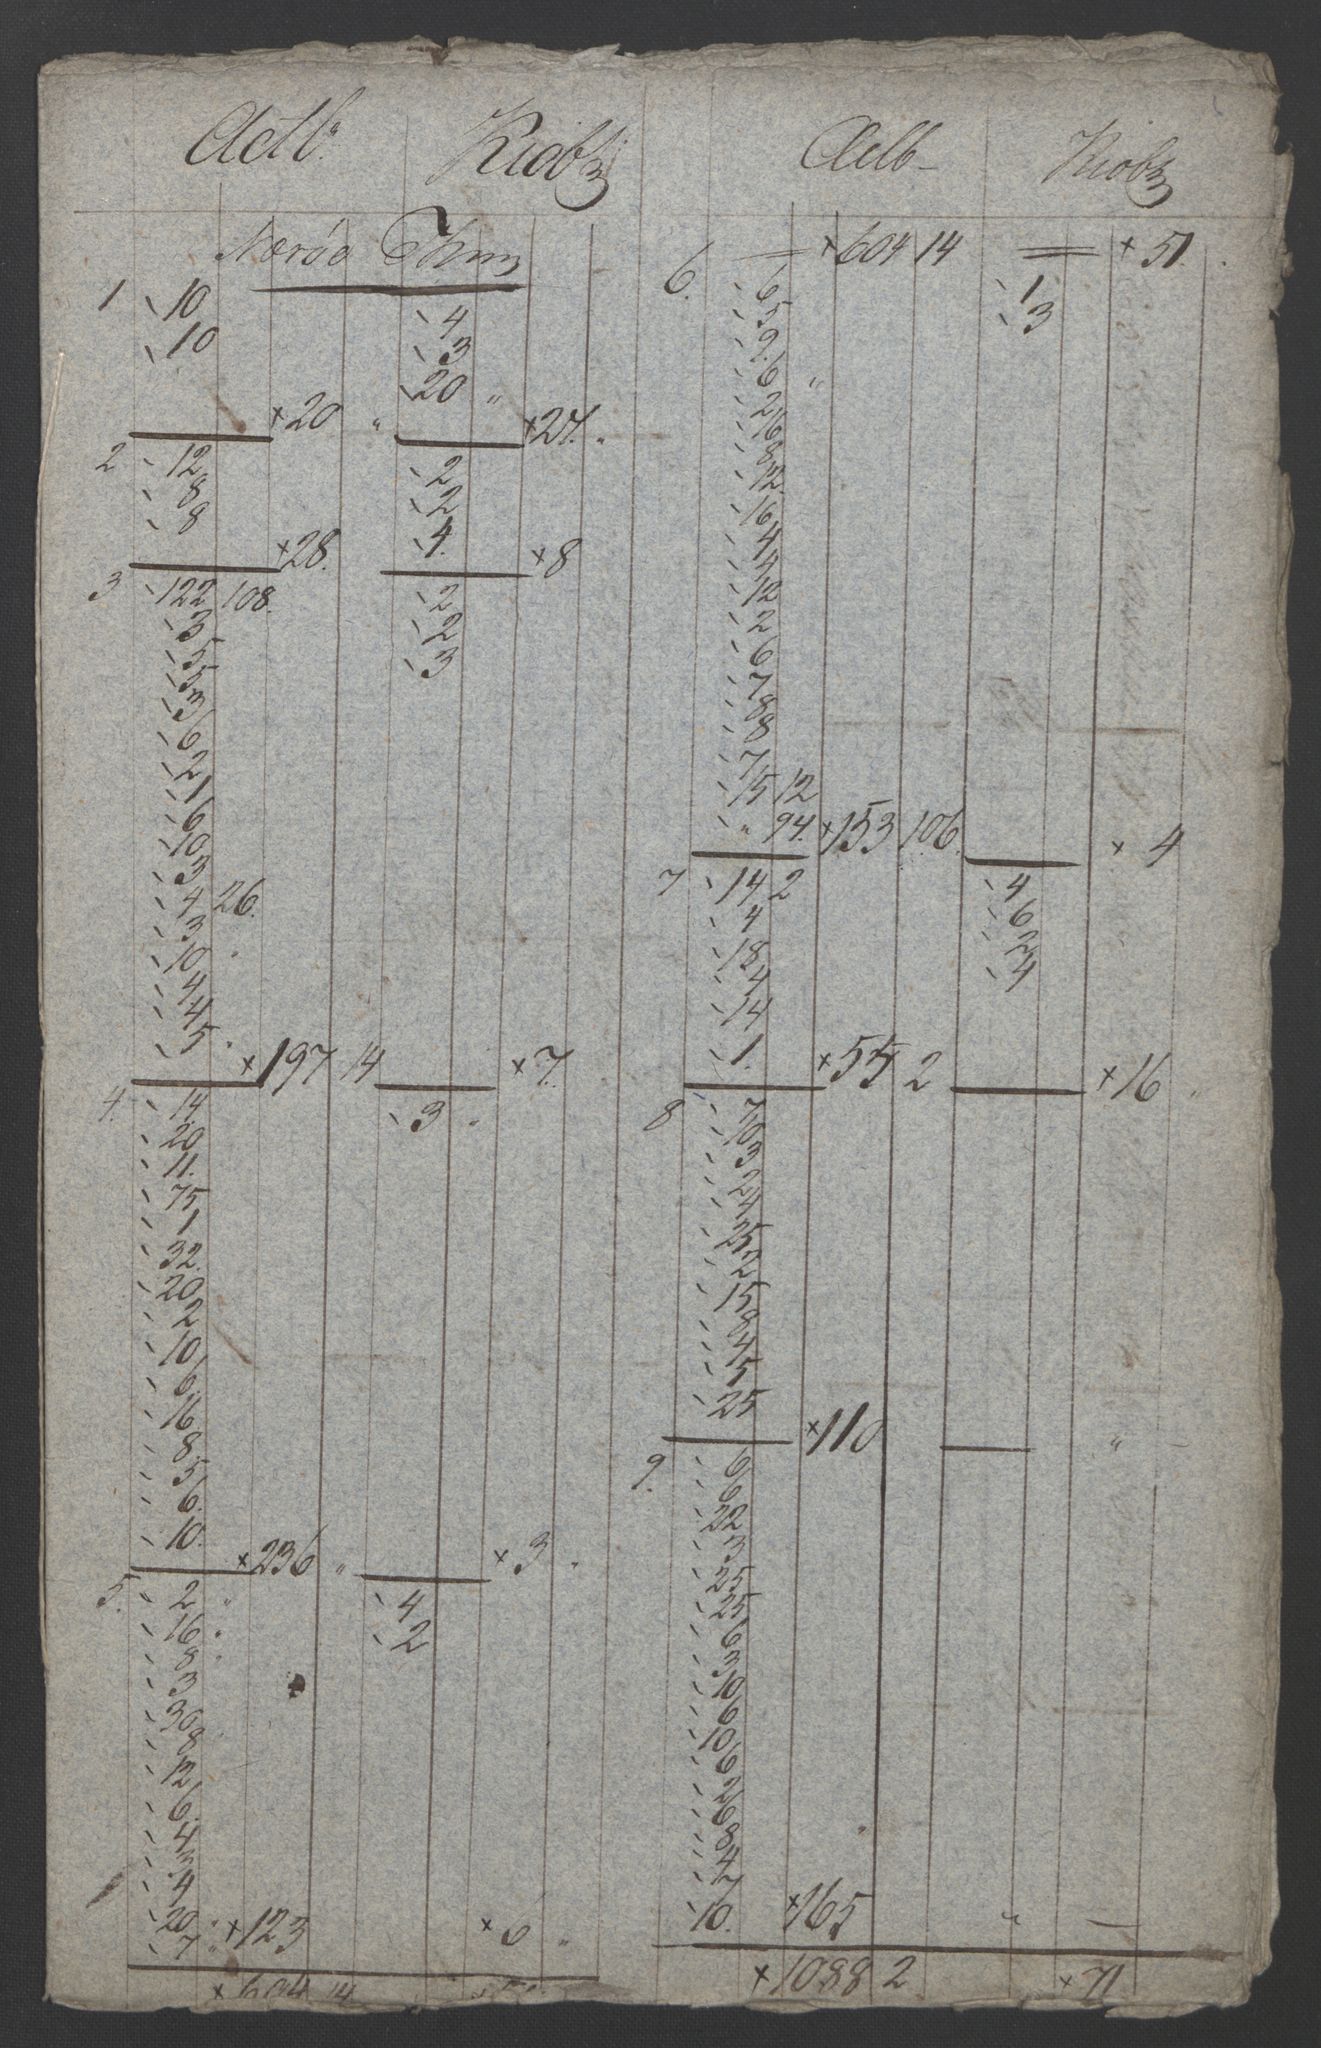 Aelb. Kiöbz
Nærøe Thin
1 10 4
10 3
20 "
×20 " ×27. "
2 12 2
8 2
8 4.
×28. ×8
3 122 108. 2
3 2
5 3
5
3
6
2
1
6
10
3
4 26.
3
10
4
4
5
×197 14 ×7.
4. 14. 3 "
20
11.
75
1
32.
20
2
10
6.
16
8.
5
6.
10.
×236 " ×3 "
5. 2 " 4
16 " 2
8 "
3
30
8
12
6.
4
3
4
20 " ×123 ×6 "
7 "
×604 14
Aelb Kiobz
×604 14 ×51.
6. 6 1
5 3
9.
6 "
2
16
8
12.
16
4
4
12
2
6
7
8
8
7
15 12
" 94. ×153 106. ×4
7 14 2 4
4 6
18 2
4 4
14
1. ×55 2 ×16 "
8 7
10
3
2
4
25
2
15
8
4
5
25
×110 "
9. 6
6
22
3
25
25
6
3
10
6
10
6
2
6
8
4
7
10. ×165 " —
×1088 2 ×71